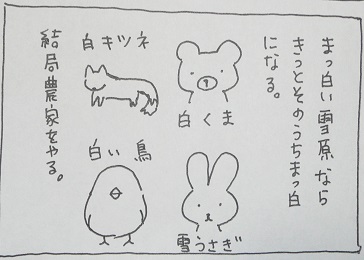 まっ白い雪原なら
きっとそのうちまっ白
になる。
白くま
雪うさぎ
白キツネ
白い鳥
結局農家をやる。